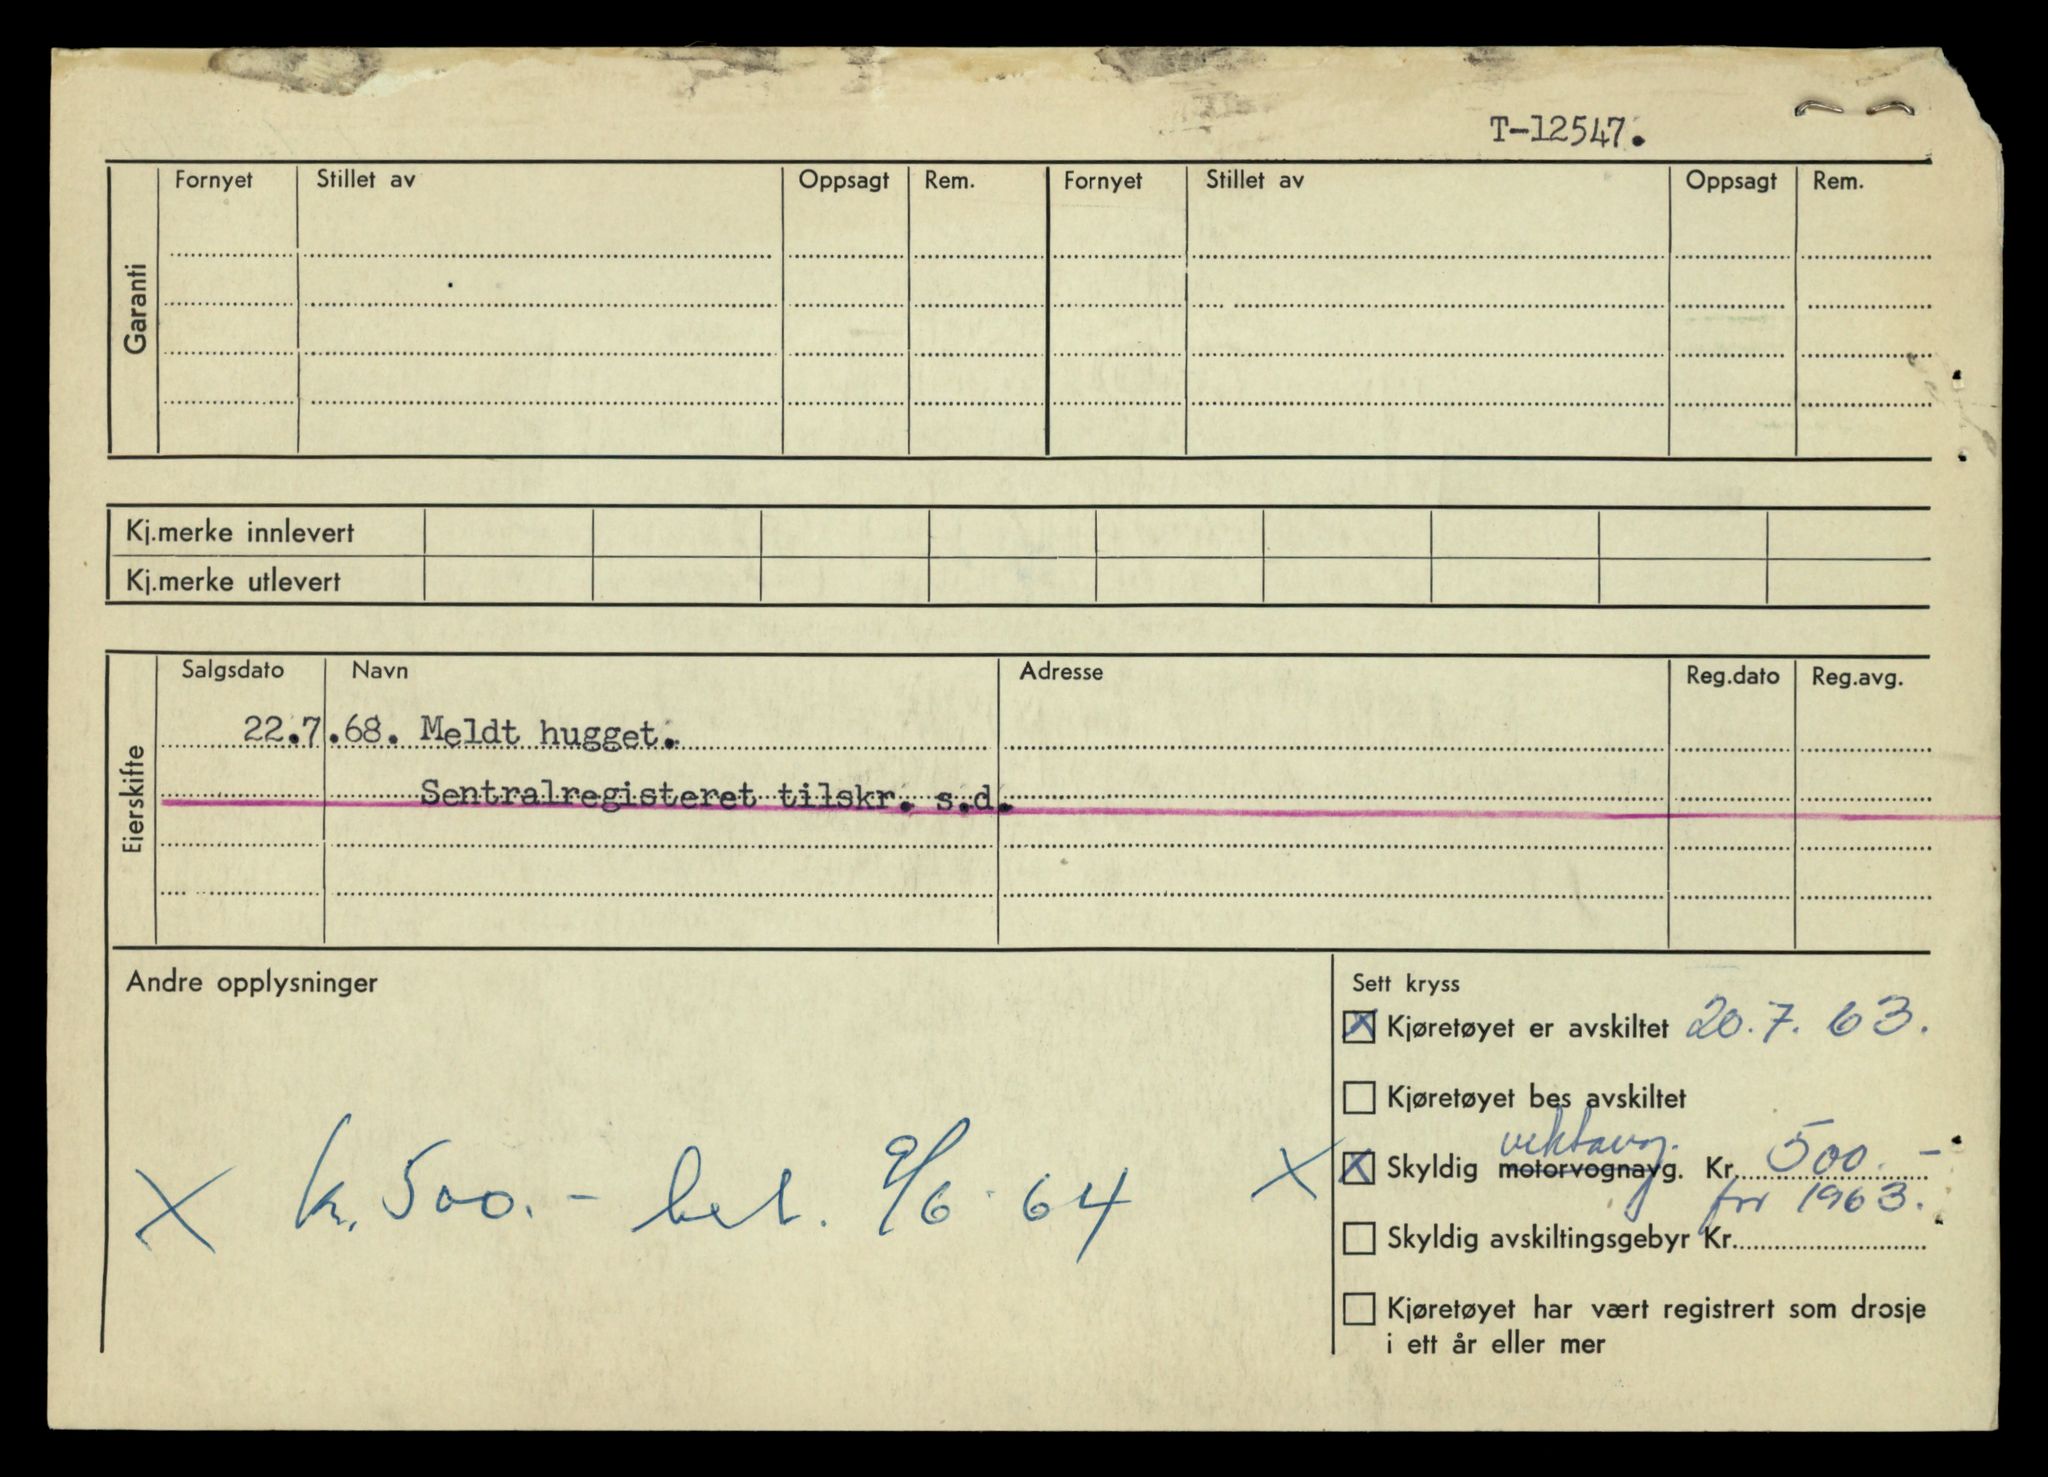 T-12547.
Garanti
Fornyet Stillet av Oppsagt Rem. Fornyet Stillet av Oppsagt Rem.
Kj.merke innlevert
Kj.merke utlevert
Eierskifte
Salgsdato Navn Adresse Reg.dato Reg.avg.
22.7.68. Meldt hugget.
Sentralregisteret tilskr. s.d.
Andre opplysninger
X k. 500.- bet. 9/6-64 X
Sett kryss
X Kjøretøyet er avskiltet 20.7.63.
Kjøretøyet bes avskiltet
vektavg.
X Skyldig motorvognavg. Kr. 500.-
for 1963.
Skyldig avskiltingsgebyr Kr.
Kjøretøyet har vært registrert som drosje
i ett år eller mer